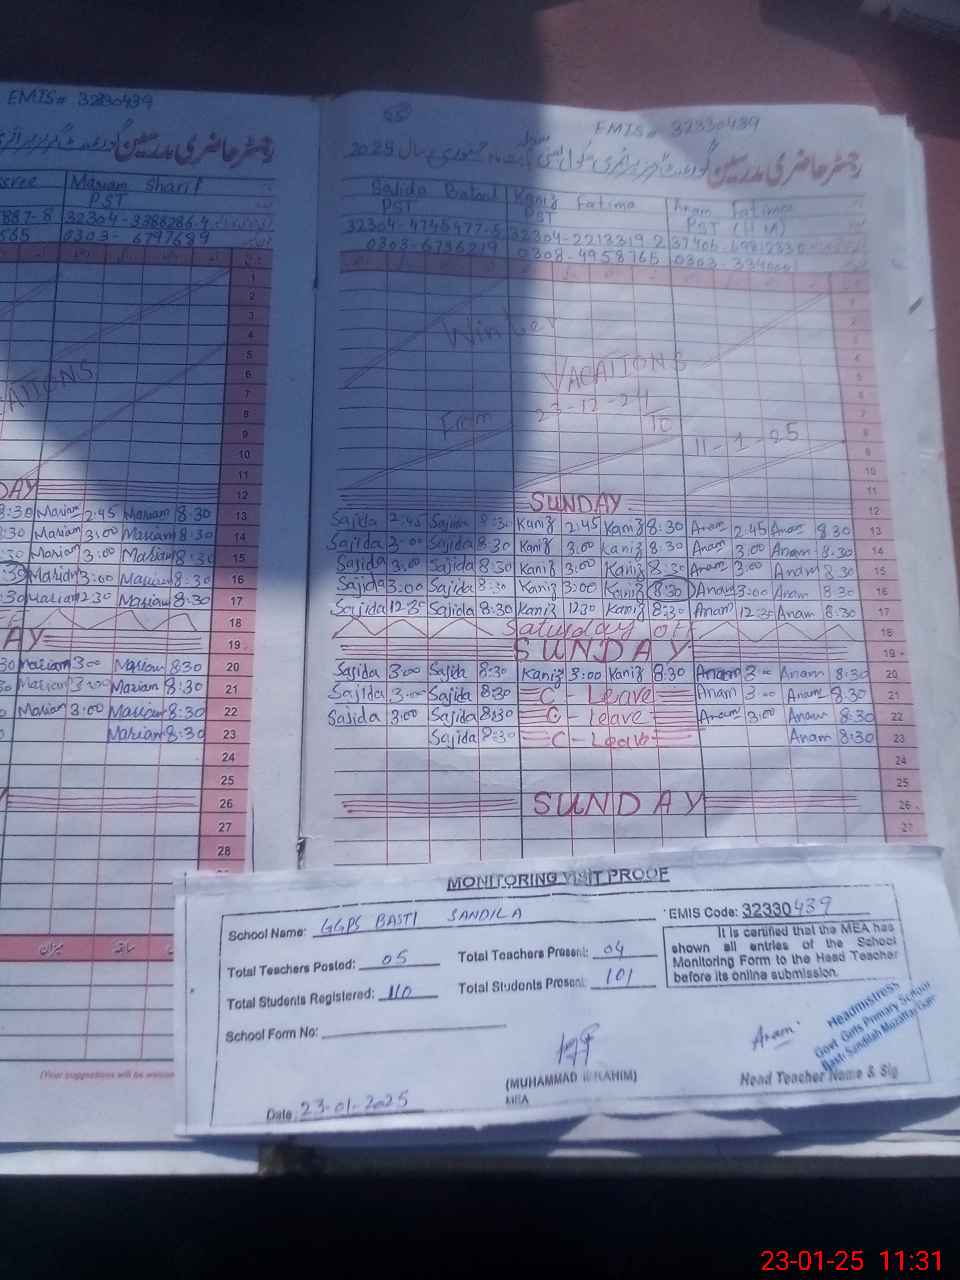 EMIS# 32330439
رجسٹر حاضری مدرسین
sree Mariam Sharif
PST
887-8 32304-3388286-4
565 0303-6797689
1
2
3
4
5
6
7
8
9
10
11
DAY 12
8:30 Mariam 2:45 Mariam 8:30 13
:30 Mariam 3:00 Mariam 8:30 14
:30 Mariam 3:00 Mariam 8:30 15
:30 Mariam 3:00 Mariam 8:30 16
:30 Mariam 12:30 Mariam 8:30 17
18
AY 19
30 Mariam 3:00 Mariam 8:30 20
Mariam 3:00 Mariam 8:30 21
Mariam 3:00 Mariam 8:30 22
Mariam 8:30 23
24
25
26
27
28
میزان
(Your suggestions will be welcom
EMIS# 32330439
رجسٹر حاضری مدرسین گورنمنٹ گرلز پرائمری سکول بستی سندیلہ ماہ جنوری سال 2025
Sajida Batool Kaniz Fatima Anam Fatima
PST PST PST (HM)
32304-4745477-5 32304-2213319-2 37406-
0303-6736219 0308-4958765 0303-
Winter
VACATIONS
From 23-12-24 To 11-1-25
SUNDAY 12
Sajida 2:45 Sajida 8:30 Kaniz 2:45 Kaniz 8:30 Anam 2:45 Anam 8:30 13
Sajida 3:00 Sajida 8:30 Kaniz 3:00 Kaniz 8:30 Anam 3:00 Anam 8:30 14
Sajida 3:00 Sajida 8:30 Kaniz 3:00 Kaniz 8:30 Anam 3:00 Anam 8:30 15
Sajida 3:00 Sajida 8:30 Kaniz 3:00 Kaniz 8:30 Anam 3:00 Anam 8:30 16
Sajida 12:35 Sajida 8:30 Kaniz 12:30 Kaniz 8:30 Anam 12:35 Anam 8:30 17
Saturday off 18
SUNDAY 19
Sajida 3:00 Sajida 8:30 Kaniz 3:00 Kaniz 8:30 Anam 3:00 Anam 8:30 20
Sajida 3:00 Sajida 8:30 C - Leave Anam 3:00 Anam 8:30 21
Sajida 3:00 Sajida 8:30 C - Leave Anam 3:00 Anam 8:30 22
Sajida 8:30 C - Leave Anam 8:30 23
24
25
SUNDAY 26
27
MONITORING VISIT PROOF
School Name: GGPS BASTI SANDILA EMIS Code: 32330439
Total Teachers Posted: 05 Total Teachers Present: 04
Total Students Registered: 110 Total Students Present: 101
It is certified that the MEA has
shown all entries of the School
Monitoring Form to the Head Teacher
before its online submission.
School Form No:
Anam
Headmistress
Govt. Girls Primary School
Basti Sandilah Muzaffargarh
(MUHAMMAD IBRAHIM)
MEA
Head Teacher Name & Sig
Date: 23-01-2025
23-01-25 11:31